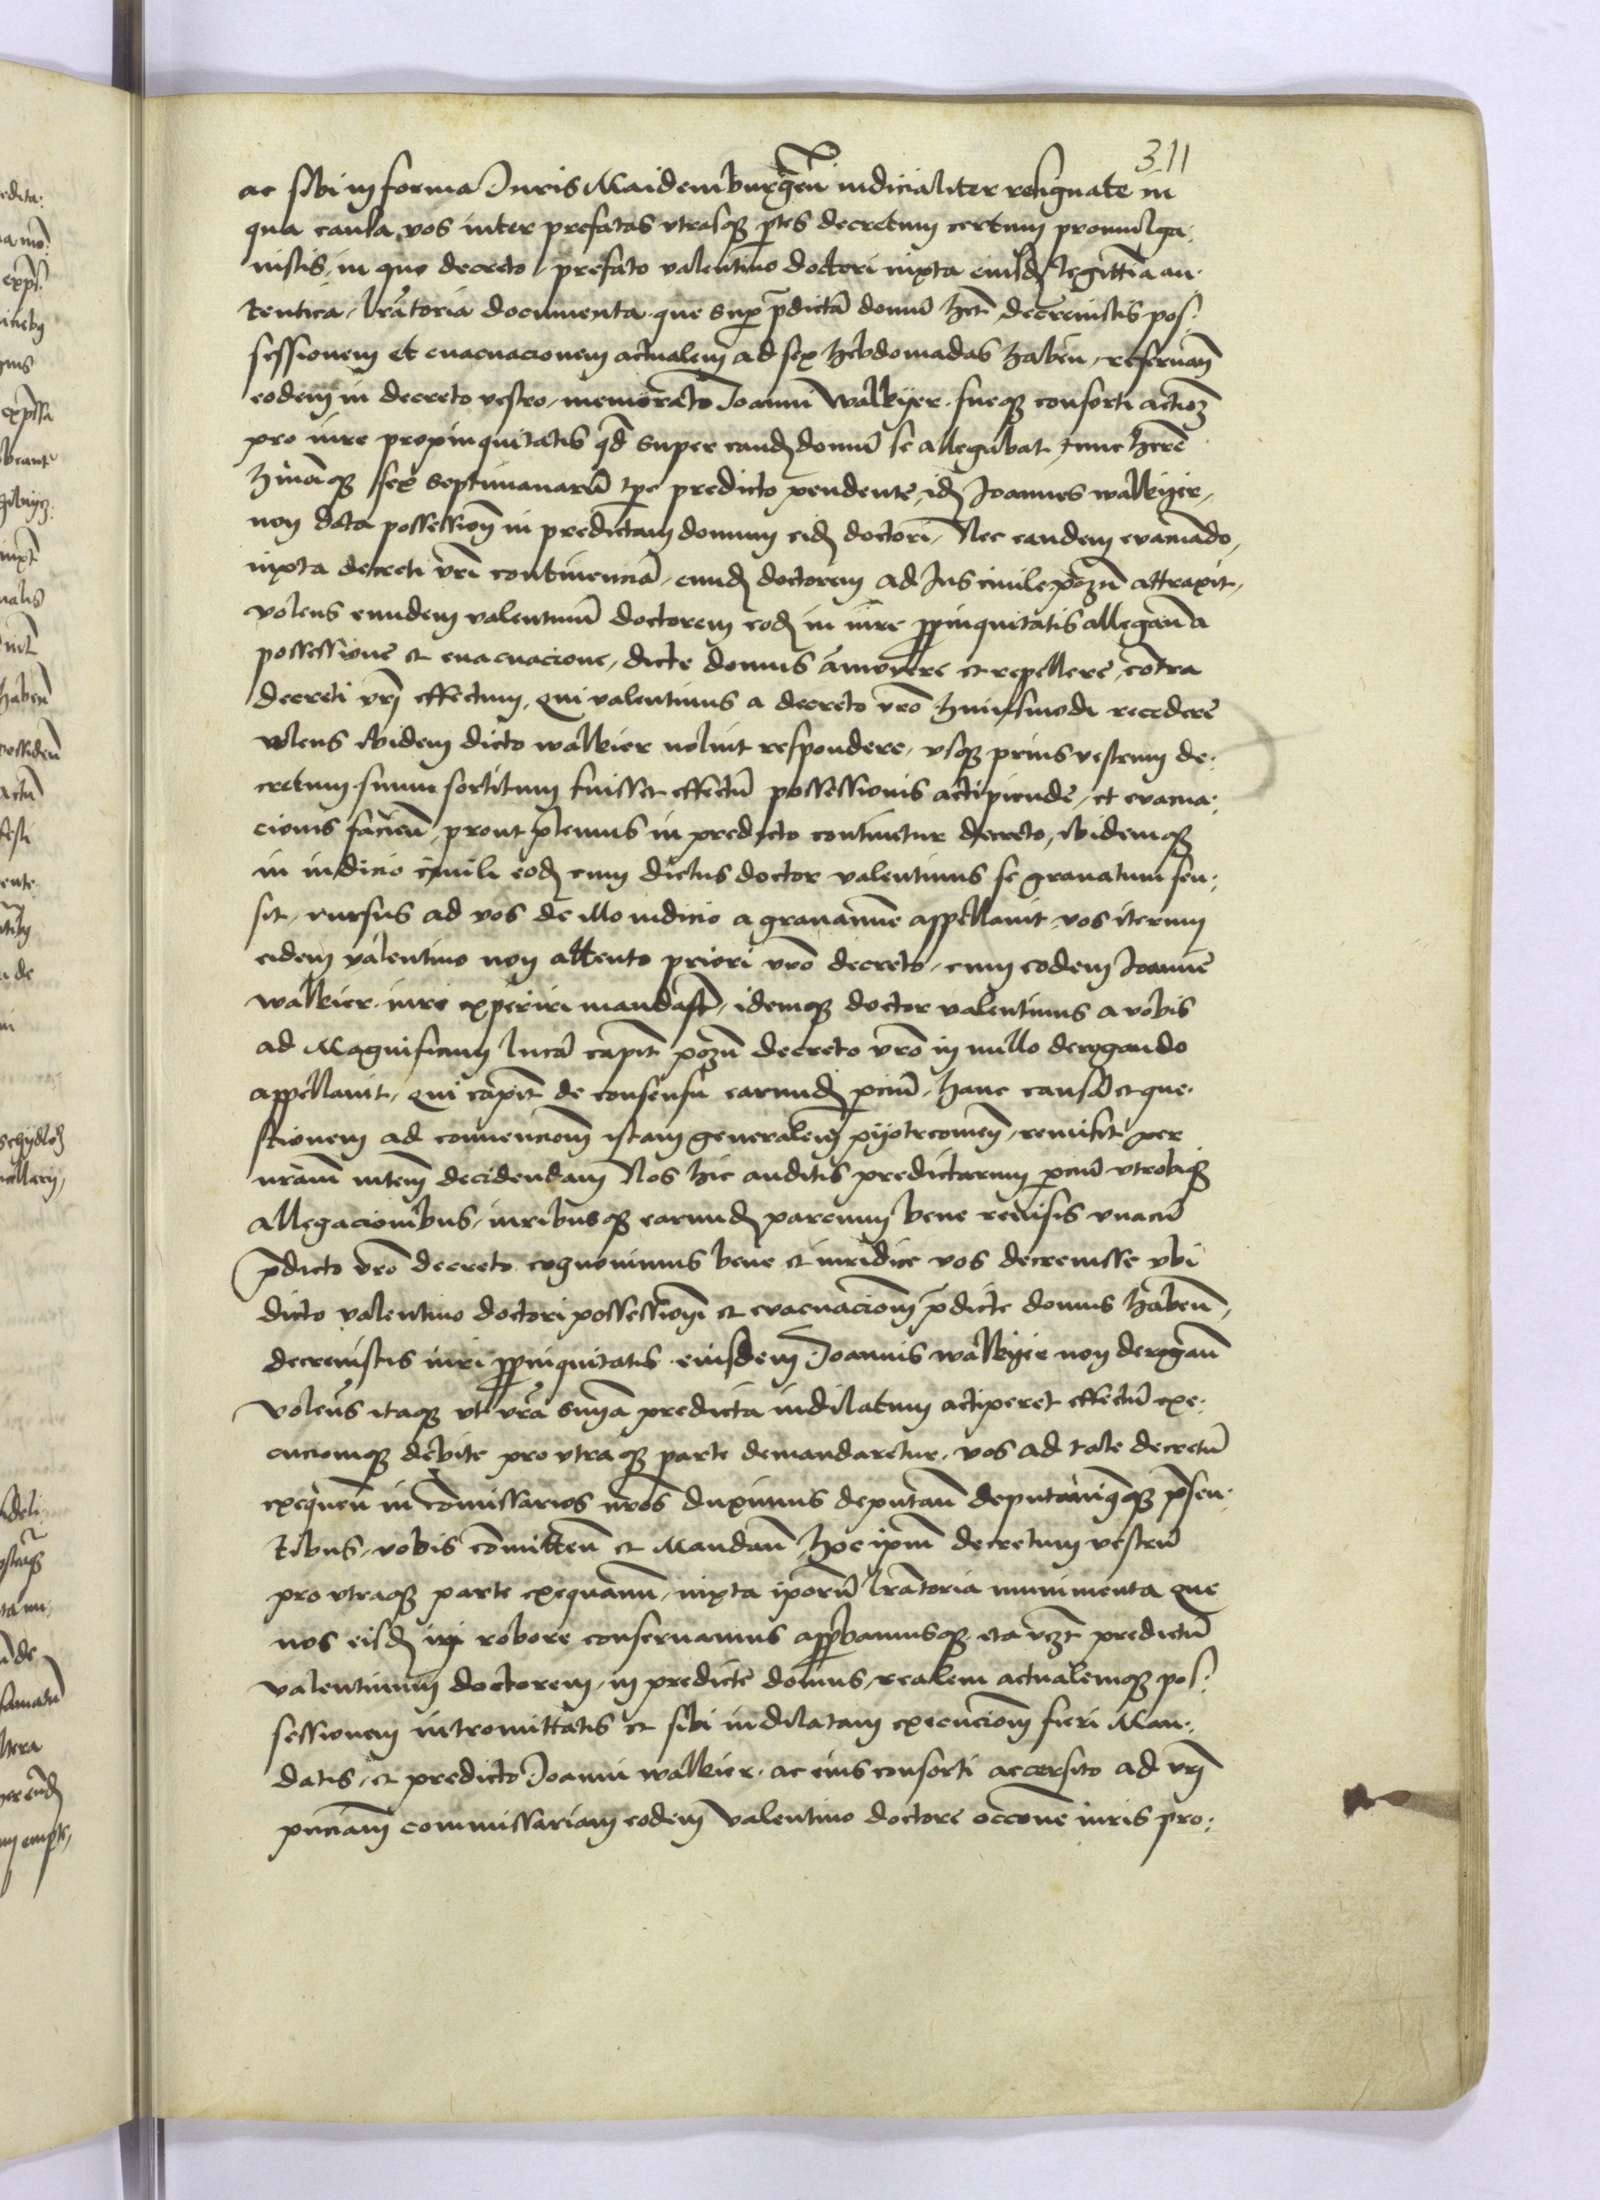 311
ac sibi in forma Juris Maidemburgeñ iudicialiter resignate in
qua causa vos inter prefatas vtrasq3 ptes decretum certum promulga:
uistis, in quo decreto, prefato valentino doctori iuxta eiusd legittia au:
tentica, lratoria documenta que sup pdictã domũ het, decreuistis pos:
sessionem et euacuacionem actualem ad sex hebdomadas habeñ, reseruañ
eodem in decreto vestro, memorato Joanni walkyer sueq3 consorti actioẽ
pro iure propinquitatis qd super eand domũ se allegabat tunc here
sex septimanarũ tpe predicto pendente, id Joannes walkyer,
non data possessioñ in predictam domum eid doctori, Nec eandem euacuãdo,
iuxta decreti vri continenciã, eund doctorem ad Jus ciuile pozñ attraxit,
volens eundem valentinũ doctorem eod in iure ppinquitatis allegañ a
possessione et euacuacione, dicte domus amouere et repellere, contra
decreti vri effectum, qui valentinus a decreto vro huiusmodi recedere
nolens ibidem dicto walkier noluit respondere, vsq3 prius vestrum de:
cretum suum sortitum fuisset effectũ possessionis accipiende, et euacua:
cionis facieñ, prout plenius in predicto continetur decreto, ibidemq3
in iudicio ciuili eod cum dictus doctor valentinus se grauatum sen:
sit, rursus ad vos de illo iudicio a grauamine appellauit, vos iterum
eidem valentino non attento priori vro decreto, cum eodem Joanne
walkier iure experiri mandast, idemq3 doctor valentinus a vobis
ad Magnificum lucã capit pozñ decreto vro in nullo derogando
appellauit, qui capit de consensu earund pciũ, hanc causã et que:
stionem ad conuencioñ istam generalem pyotrcouieñ, remisit per
nram mtem decidendam Nos hic auditis predictarum pciũ vtrobiq3
allegacionibus, iuribusq3 earund parcium bene reuisis vnacũ
pdicto vro decreto cognouimus bene et iuridice vos decreuisse vbi
dicto valentino doctori possessioñ et euacuacioñ pdicte domus habeñ,
decreuistis iuri ppinquitatis eiusdem Joannis walkyer non derogañ
Volens itaq3 vt vra snia predicta indilatum acciperet effectũ exe:
cucionq3 debite pro vtraq3 parte demandaretur, vos ad tale decretũ
exequeñ in comissarios nros duximus deputañ deputamusq3 pseñ:
tibus, vobis comitteñ et Mandañ, hoc ipm decretum vestrũ
pro vtraq3 parte exequamini, iuxta iporũ lratoria munimenta que
nos eisd in robore conseruamus approbamusq3 ita vzt predictũ
valentinum doctorem, in predicte domus, realem actualemq3 pos:
sessionem intromittatis et sibi indilatam execucioñ fieri Man:
datis, et predicto Joanni walkier ac eius consorti accersito ad vrj
pnciam commissariam eodem valentino doctore occone iuris pro: